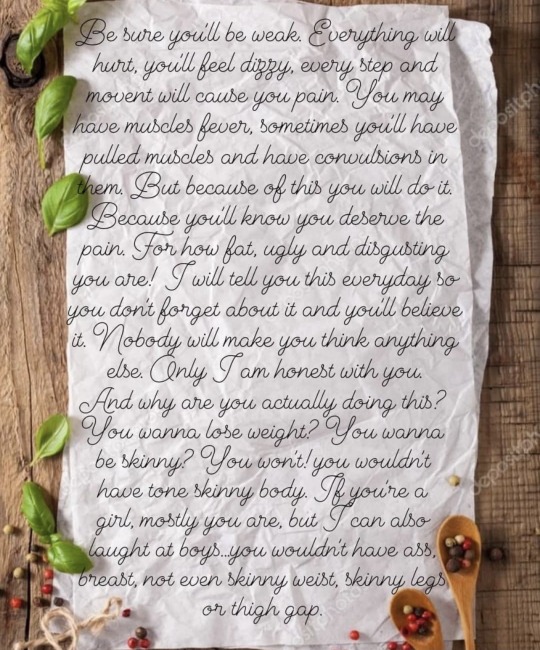 Be sure you'll be weak. Everything will
hurt, you'll feel dizzy, every step and
movent will cause you pain. You may
have muscles fever, sometimes you'll have
pulled muscles and have convulsions in
them. But because of this you will do it.
Because you'll know you deserve the
pain. For how fat, ugly and disgusting
you are! I will tell you this everyday so
you don't forget about it and you'll believe
it. Nobody will make you think anything
else. Only I am honest with you.
And why are you actually doing this?
You wanna lose weight? You wanna
be skinny? You won't! you wouldn't
have tone skinny body. If you're a
girl, mostly you are, but I can also
laught at boys...you wouldn't have ass,
breast, not even skinny weist, skinny legs
or thigh gap.